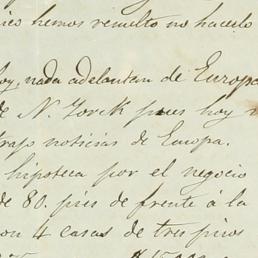 hemos resuelto no hacerlo
hoy, nada adelantan de Europa
de N. Yorck pues hoy
trajo noticias de Europa.
hipoteca por el negocio
de 80. piés de frente á la
con 4 casas de tres pisos